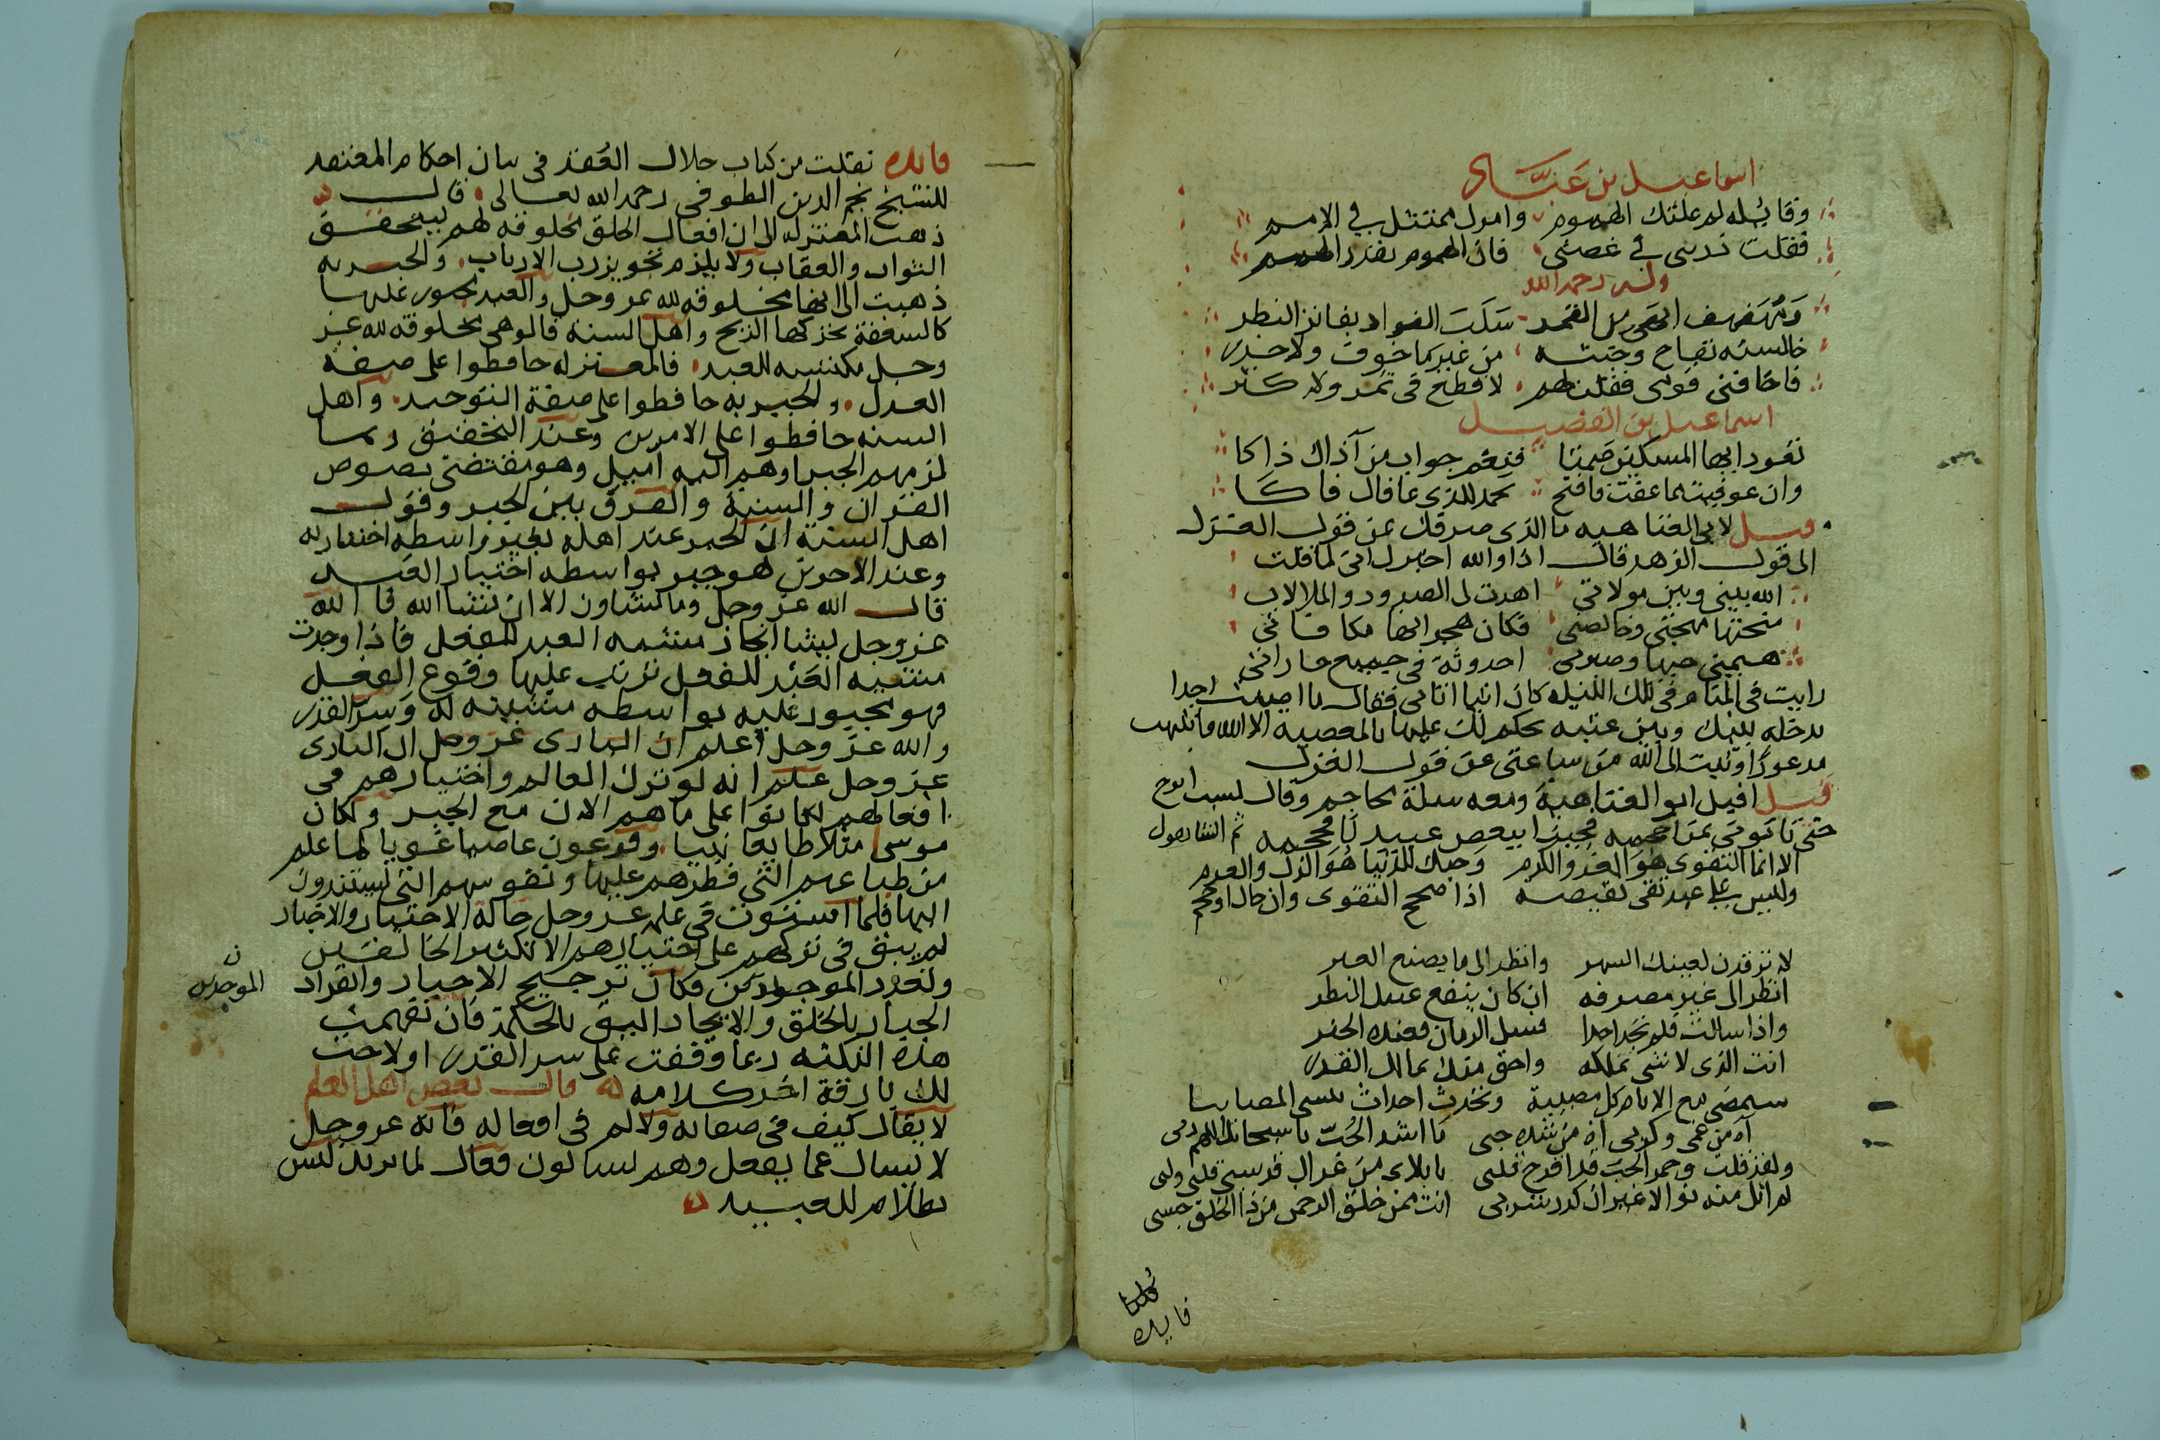 اسماعيل بن عباد
وقايله لم علتك الهموم وامرك ممتثل في الامم
فقلت ذريني في غصتي فان الهموم بقدر الهمم
وله رحمه الله
ومهفهف ابهى من القمر سلب الفواد بفاتر النظر
خالسته تفاح وجنته من غير ما خوف ولا حذر
فاخافني قومي فقلت لهم لا قطع في ثمر ولا كثر
اسماعيل بن
تعود ايها المسكين صمتا فنعم جواب من آذاك ذاكا
وان عوفيت مما عفت فافتح بحمد للذي عافاك فاكا
قيل لابي العتاهيه ما الذي صرفك عن قول الغزل
الى قول الزهد قال اذا والله اخبرك اني لما قلت
الله بيني وبين مولاتي اهدت لي الصدود والملالات
منحتها مهجتي وخالصتي فكان هجرانها مكافاتي
هيمني حبها وصيرني احدوثة في جميع جاراتي
رايت في المنام في تلك الليله كان اتيا اتاني فقال ما اصبت احدا
تدخله بينك وبين عتبه يحكم لك عليها بالمعصيه الا الله فانتبهت
مدعورا وتبت الى الله من ساعتي عن قول الغزل
قيل اقبل ابو العتاهية ومعه سلة محاجم وقال لست ابرح
الا انما التقوى هو العز والكرم وحبك للدنيا هو الذل والعدم
وليس على عبد تقي نقيصه اذا صحح التقوى وان حاك او حجم
لا ترقدن لعينك السهر وانظر الى ما يصنع الغير
انظر الى غير مصرفه ان كان ينفع عينك النظر
واذا سالت فلم تجد احدا فسل الزمان فعنده الخبر
انت الذي لا شي تملكه واحق منك بمالك القدر
سيمضي مع الايام كل مصيبة وتحدث احداث تنسي المصايبا
آه من غمي وكربي آه من شده حبي ما اشد الحب يا سبحانك اللهم ربي
ولقد قلت وحمر الحب قد اقرح قلبي يا بلاي من غزال قد سبي قلبي ولبي
لم انل منه نوالا غير ان كدر شربي انت ممن خلق الرحمن من ذا الخلق حسبي
فايده
فايده نقلت من كتاب حلال العقد في بيان احكام المعتقد
للشيخ نجم الدين الطوفي رحمه الله تعالى قال
ذهبت المعتزله الى ان افعال الخلق مخلوقه لهم ليتحقق
الثواب والعقاب ولا يلزم تجويز رب الارباب والجبريه
ذهبت الى انها مخلوقه لله عز وجل والعبد مجبور عليها
كالسعفة تحركها الريح واهل السنة قالوا هي مخلوقه لله عز
وجل مكتسبه للعبد فالمعتزله حافظوا على صفة
العدل والجبريه حافظوا على صفة التوحيد واهل
السنه حافظوا على الامرين وعند التحقيق ربما
لزمهم الجبر وهم اليه اميل وهو مقتضى نصوص
القران والسنة والفرق بين الجبر وقول
اهل السنة ان الجبر عند اهله بغير واسطه اختيار له
وعند الاخرين هو جبر بواسطه اختيار العبد
قال الله عز وجل وما تشاون الا ان يشا الله فالله
عز وجل يشا انجاز مشيه العبد للفعل فاذا وجدت
مشيه العبد للفعل ترتب عليها وقوع الفعل
فهو مجبور عليه بواسطه مشيته له وسر القدر
والله عز وجل اعلم ان الباري عز وجل ان الباري
عز وجل علم انه لو ترك العالم واختيارهم في
افعالهم لكانوا على ما هم الان مع الجبر ولكان
موسى مثلا طايعا نبيا وفرعون عاصيا غويا لما علم
من طباعهم التي فطرهم عليها ونفوسهم التي يستندون
اليها فلما استوت في علمه عز وجل حالة الاختيار والاجبار
لم يبق في تركهم على اختيارهم الا تكثير الخالقين
وتعدد الموجدين فكان ترجيح الاجبار وانفراد
الموحدين ن
الجبار بالخلق والايجاد اليق بالحكمة فان تفهمت
هذه النكته ربما وقفت على سر القدر او لاحت
لك بارقة اخر كلامه قال بعض اهل العلم
لا يقال كيف في صفاته ولا لم في افعاله فانه عز وجل
لا يسال عما يفعل وهم يسالون فعال لما يريد ليس
بظلام للعبيد